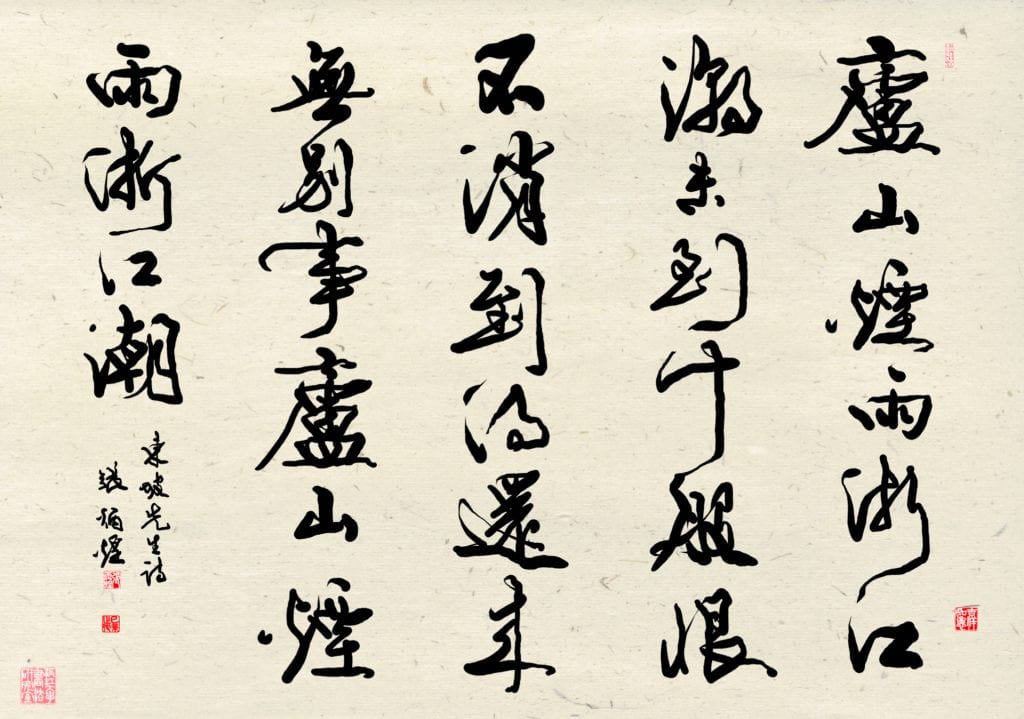 廬山煙雨浙江
潮未到千般恨
不消到得還來
無別事廬山煙
雨浙江潮
東坡先生詩
張炳煌